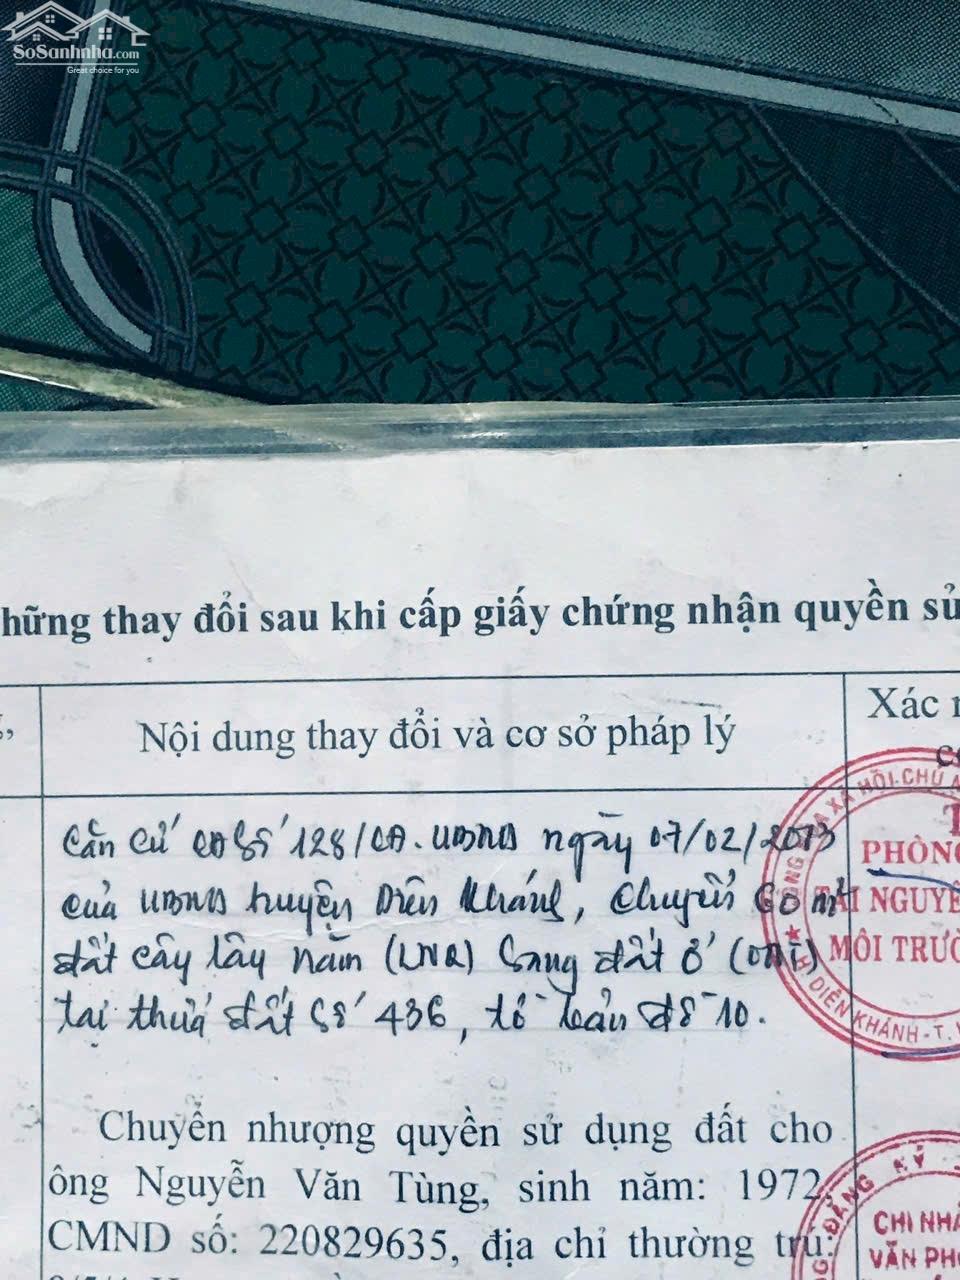 SoSanhnha.com
Great choice for you
hững thay đổi sau khi cấp giấy chứng nhận quyền sử
Nội dung thay đổi và cơ sở pháp lý
Xác
Căn cứ QĐ số 128/QĐ.UBND ngày 07/02/2013
của UBND huyện Diên Khánh, chuyển 60 m²
đất cây lâu năm (LNQ) sang đất ở (ONT)
tại thửa đất số 436, tờ bản đồ 10.
XÃ HỘI CHỦ
PHÒNG
TÀI NGUYÊ
MÔI TRƯỜ
H. DIÊN KHÁNH - T.
Chuyển nhượng quyền sử dụng đất cho
ông Nguyễn Văn Tùng, sinh năm: 1972,
CMND số: 220829635, địa chỉ thường trú:
ĐĂNG KÝ
CHI NHÁ
VĂN PH